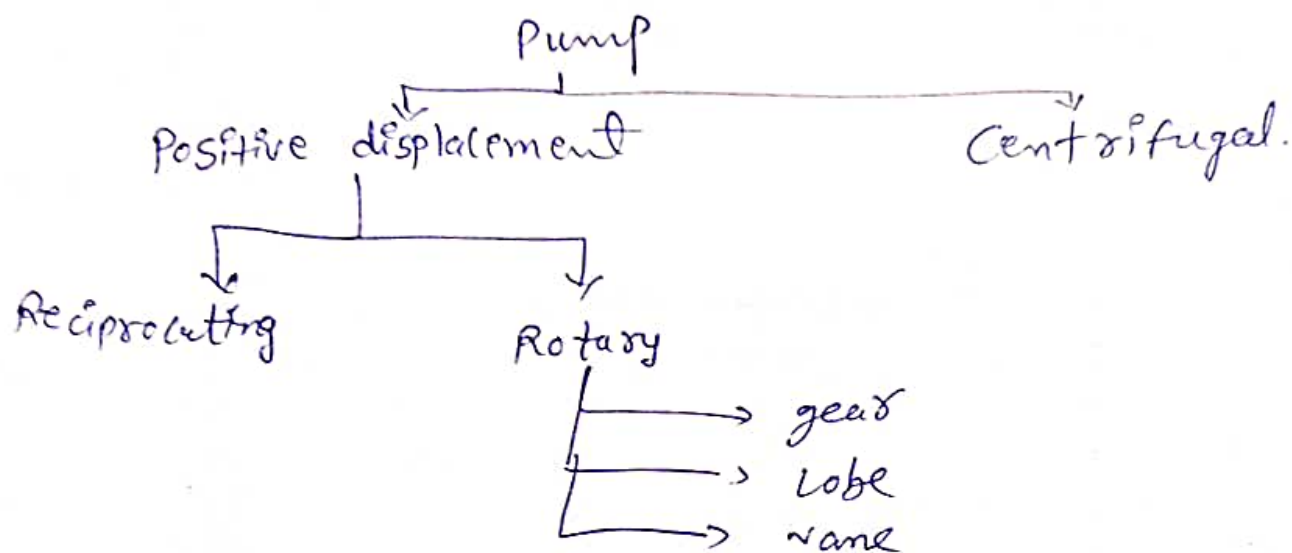 Pump
Positive displacement Centrifugal.
Reciprocating Rotary
gear
Lobe
vane